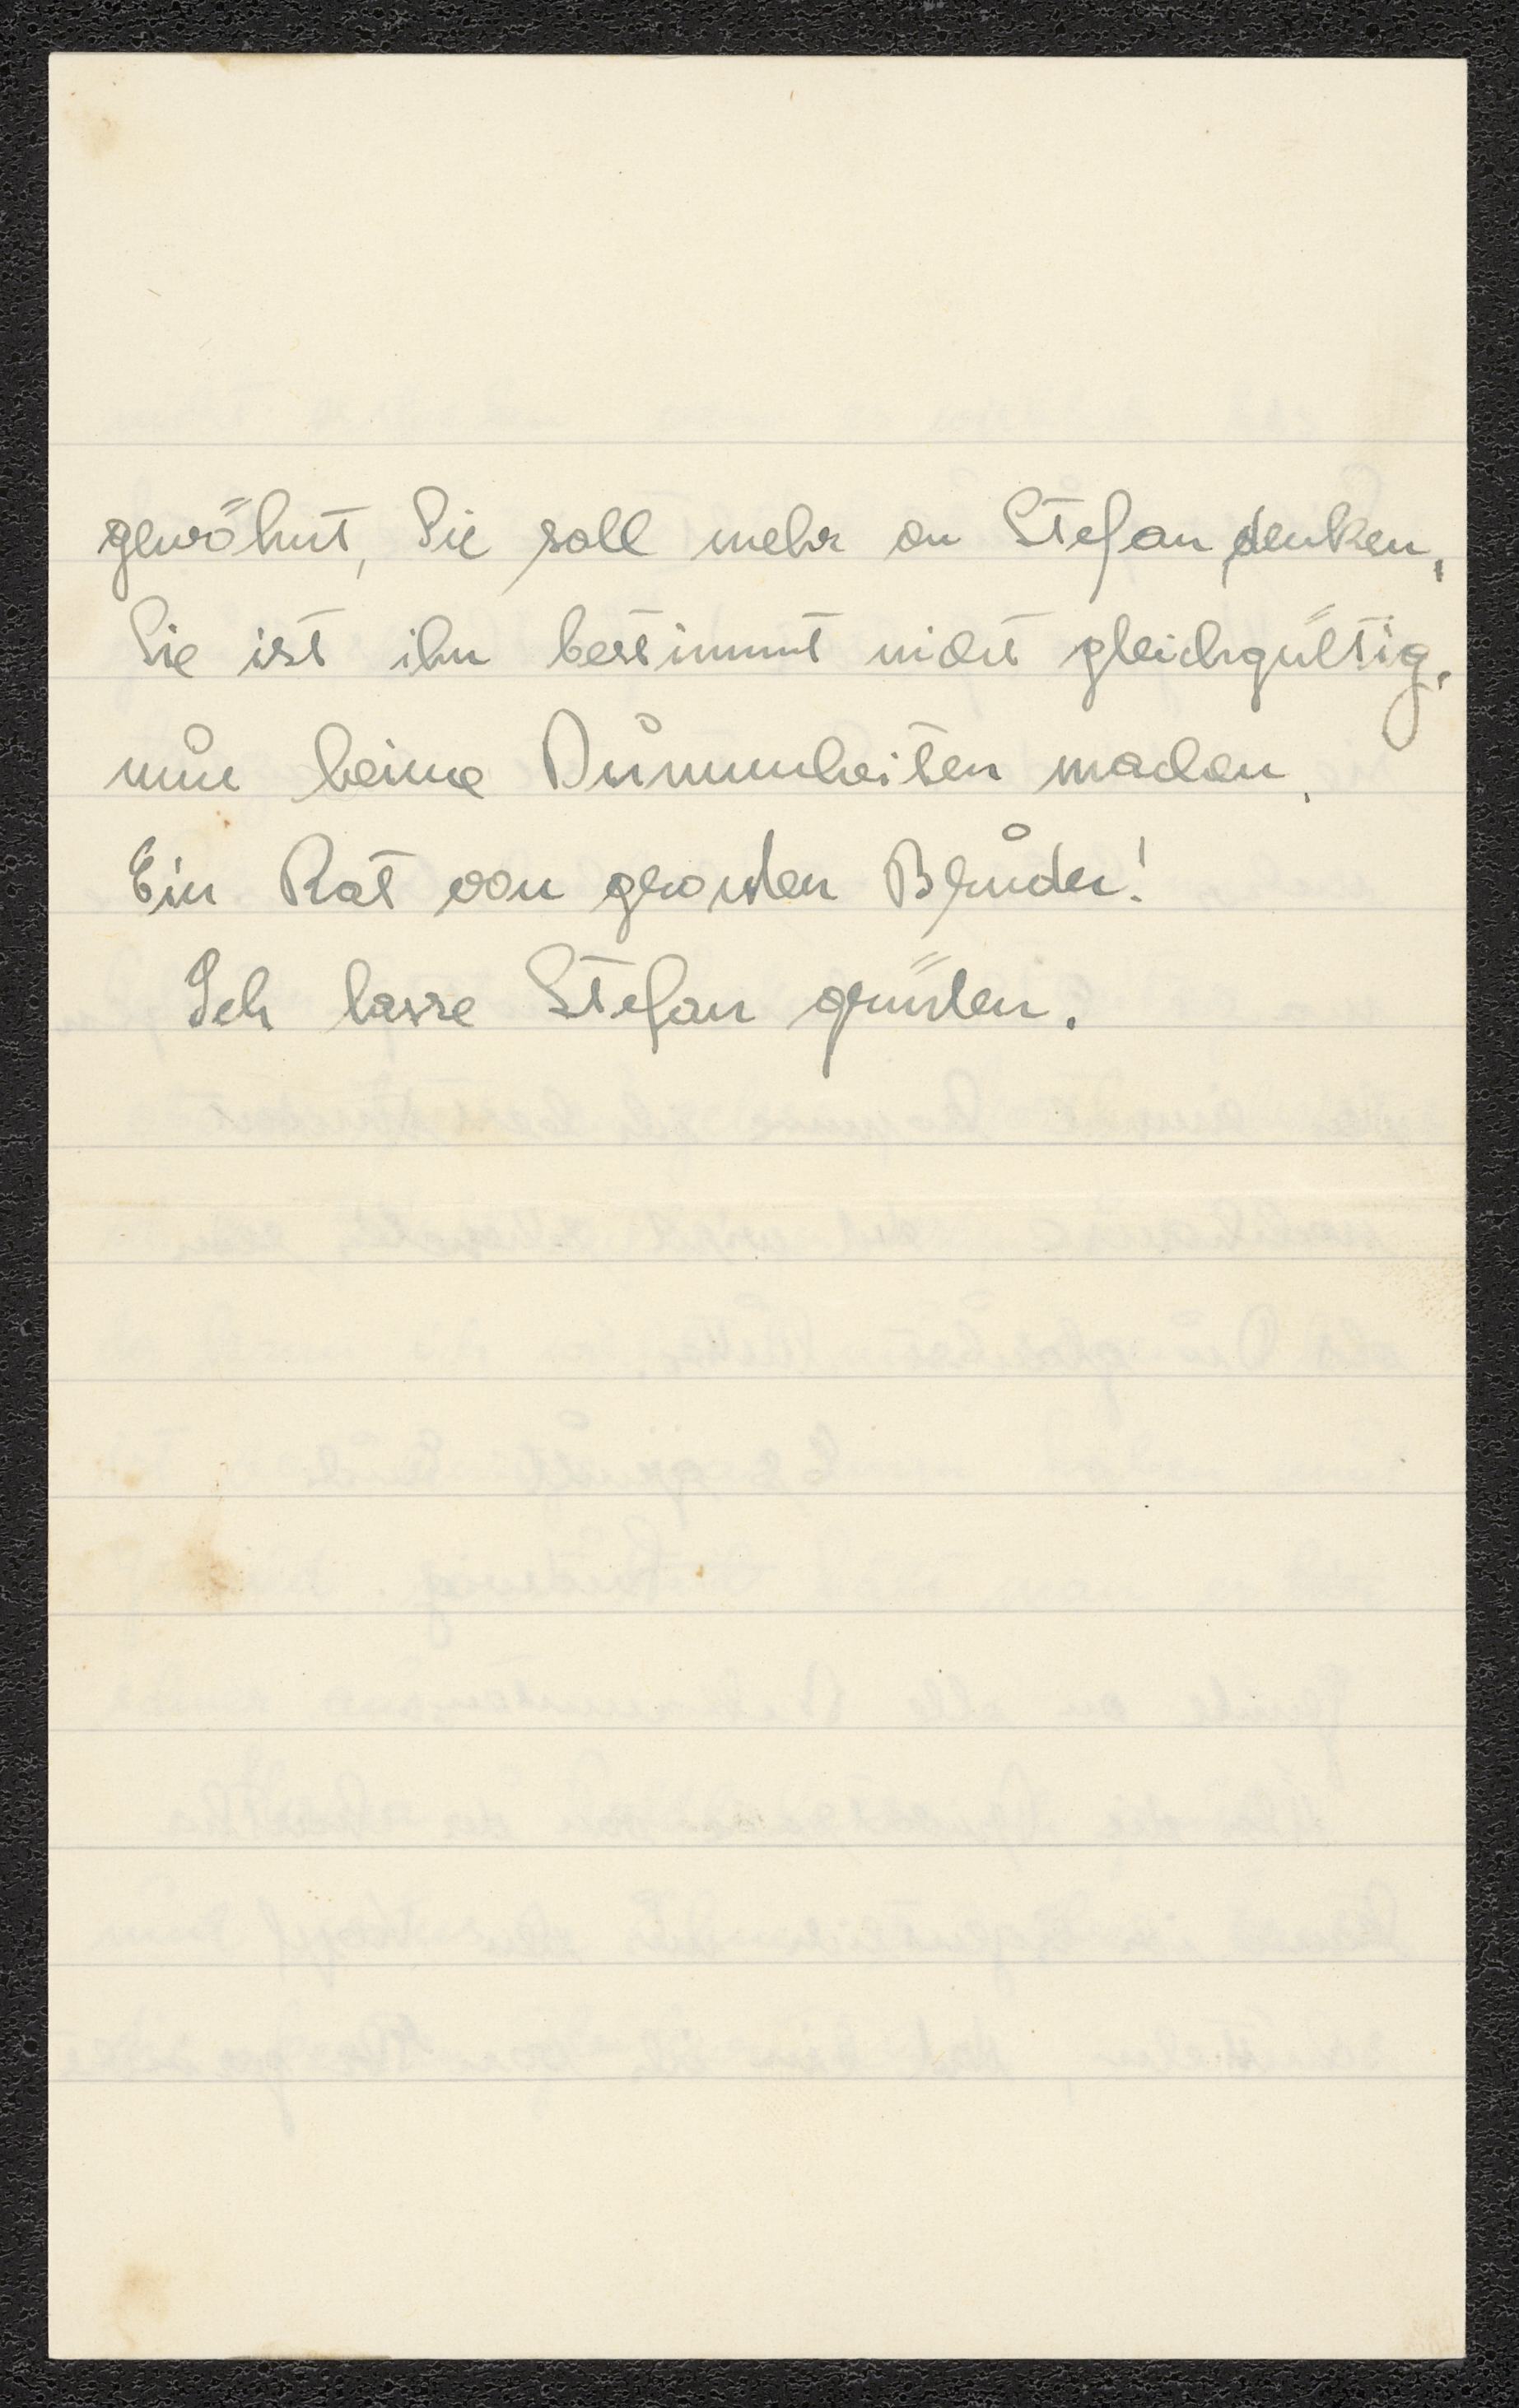 gewöhnt, Sie soll mehr an Stefan denken,
Sie ist ihn bestimmt nicht gleichgültig.
nur keine Dummheiten machen.
Ein Rat von großen Bruder!
Ich lasse Stefan grüßen.